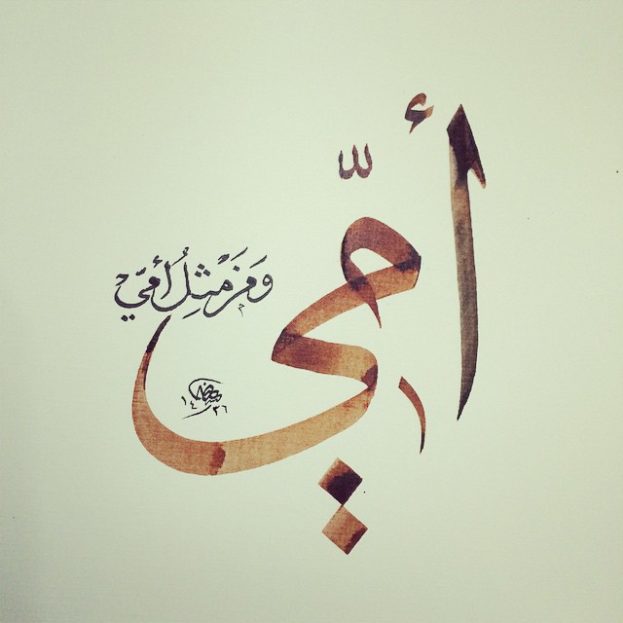 أمّي
وَمَن مثلُ أمّيْ
١٤٣٦